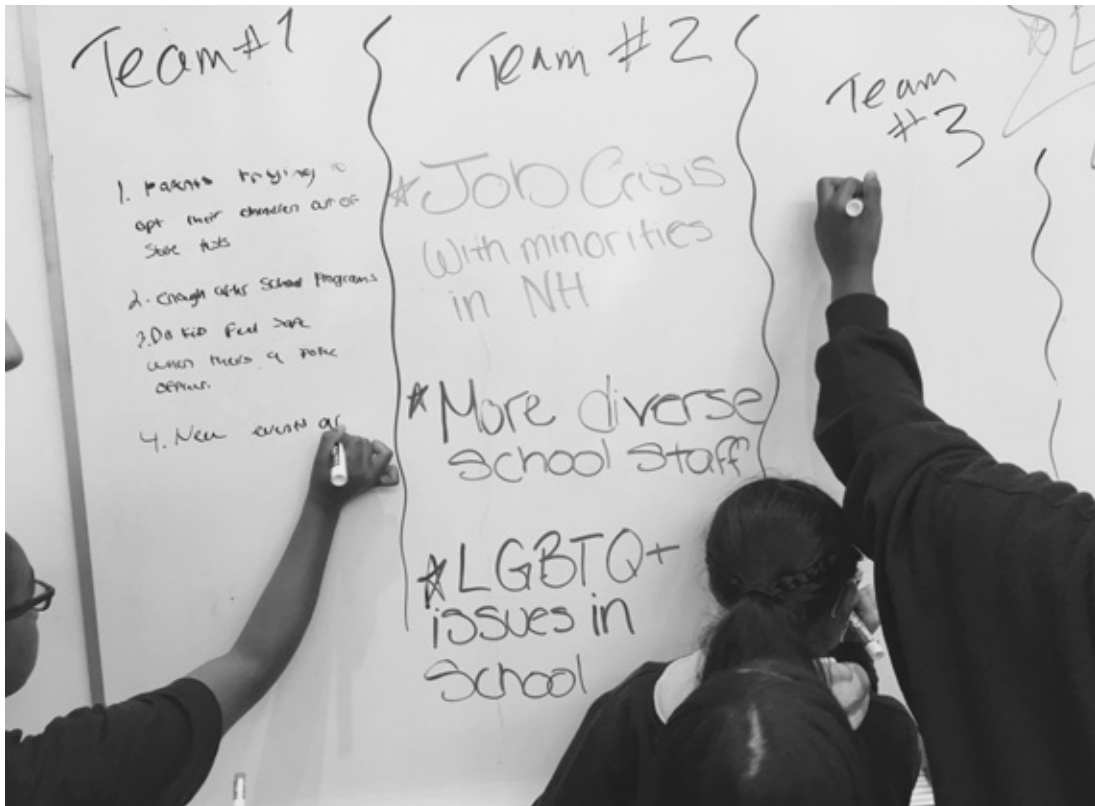 Team #1
1. Parents trying to
opt their children out of
State tests
2. Enough after School Programs
3. Do kids Feel Safe
when there's a police
officer.
4. New events ar
Team #2
Job Crisis
with minorities
in NH
More diverse
school staff
LGBTQ+
issues in
School
Team
#3